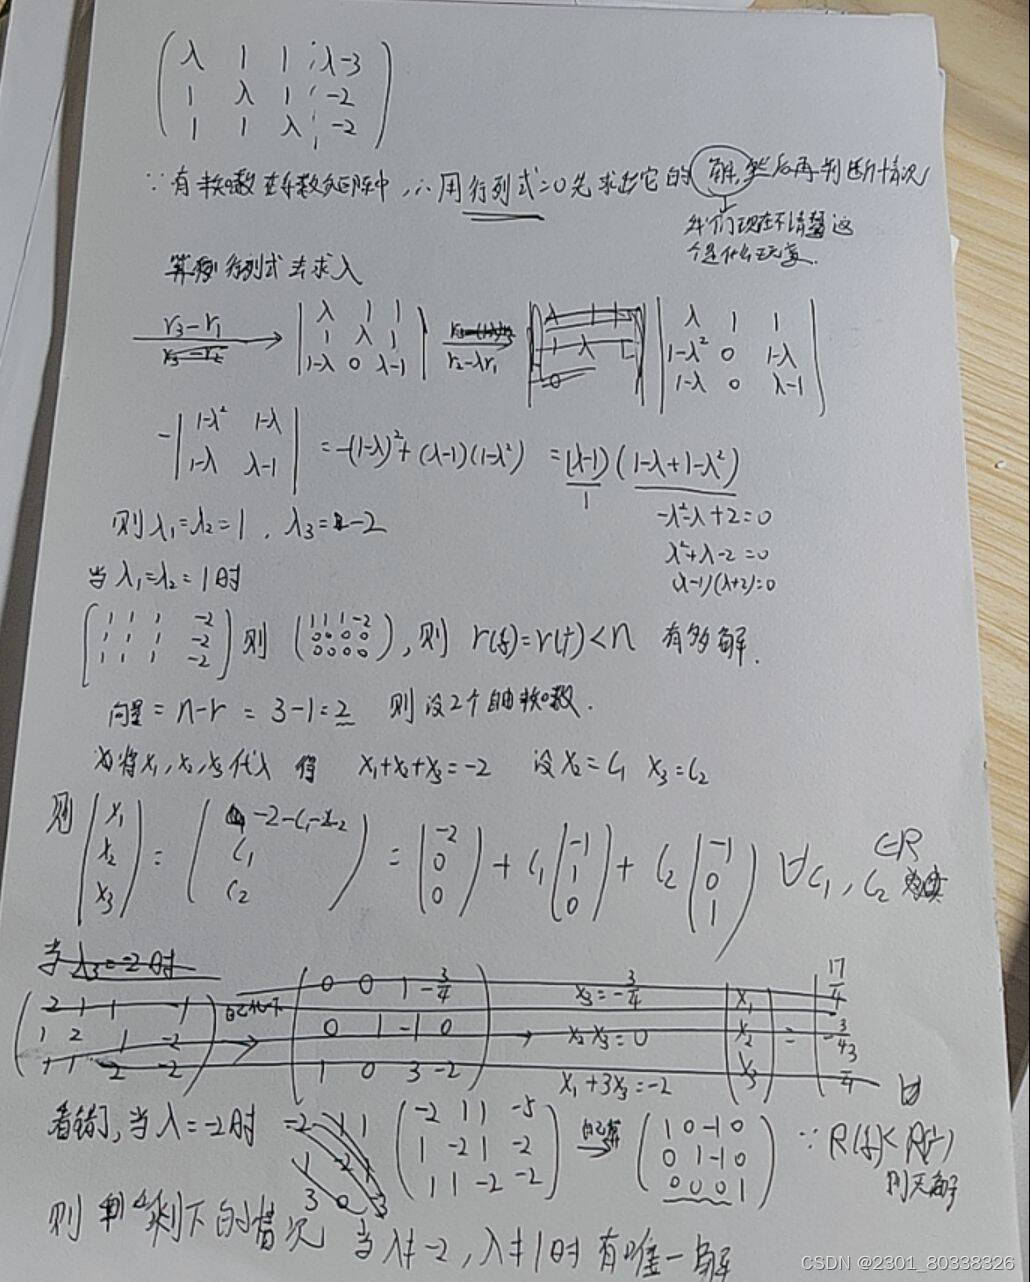 λ 1 1 λ-3
1 λ 1 -2
1 1 λ -2
∵有未知数在系数矩阵中,∴用行列式=0先求出它的解,然后再判断情况
我们现在不清楚这
个是什么玩意.
算 行列式去求λ
r₃-r₁
r₂-λr₁
λ 1 1
1 λ 1
1-λ 0 λ-1
λ 1 1
1-λ² 0 1-λ
1-λ 0 λ-1
-|1-λ² 1-λ
1-λ λ-1| = -(1-λ)²+(λ-1)(1-λ²) = (λ-1)(1-λ+1-λ²)
1
-λ²-λ+2=0
λ²+λ-2=0
(λ-1)(λ+2)=0
则λ₁=λ₂=1, λ₃=-2
当λ₁=λ₂=1时
1 1 1 -2
1 1 1 -2
1 1 1 -2
则
1 1 1 -2
0 0 0 0
0 0 0 0
,则 r(f)=r(f)<n 有多解.
向量=n-r=3-1=2 则设2个自由未知数.
将x₁,x₂,x₃代入 得 x₁+x₂+x₃=-2 设x₂=C₁ x₃=C₂
则
x₁
x₂
x₃
=
-2-C₁-C₂
C₁
C₂
=
-2
0
0
+ C₁
-1
1
0
+ C₂
-1
0
1
∀C₁,C₂ ∈R
当λ₃=-2时
2 1 1 -1
1 2 1 -2
1 1 2 -2
0 0 1 -3/4
0 1 -1 0
1 0 3 -2
x₃=-3/4
x₂ x₃=0
x₁+3x₃=-2
x₁
x₂
x₃
=
17/4
-3/4
看错了,当λ=-2时
-2 1 1
1 -2 1
3 0 3
-2 1 1 -5
1 -2 1 -2
1 1 -2 -2
自己算
1 0 -1 0
0 1 -1 0
0 0 0 1
∵R(f)<R(f)
则无解
则 剩下的情况 当λ≠-2,λ≠1时有唯一解
CSDN @2301_80338326